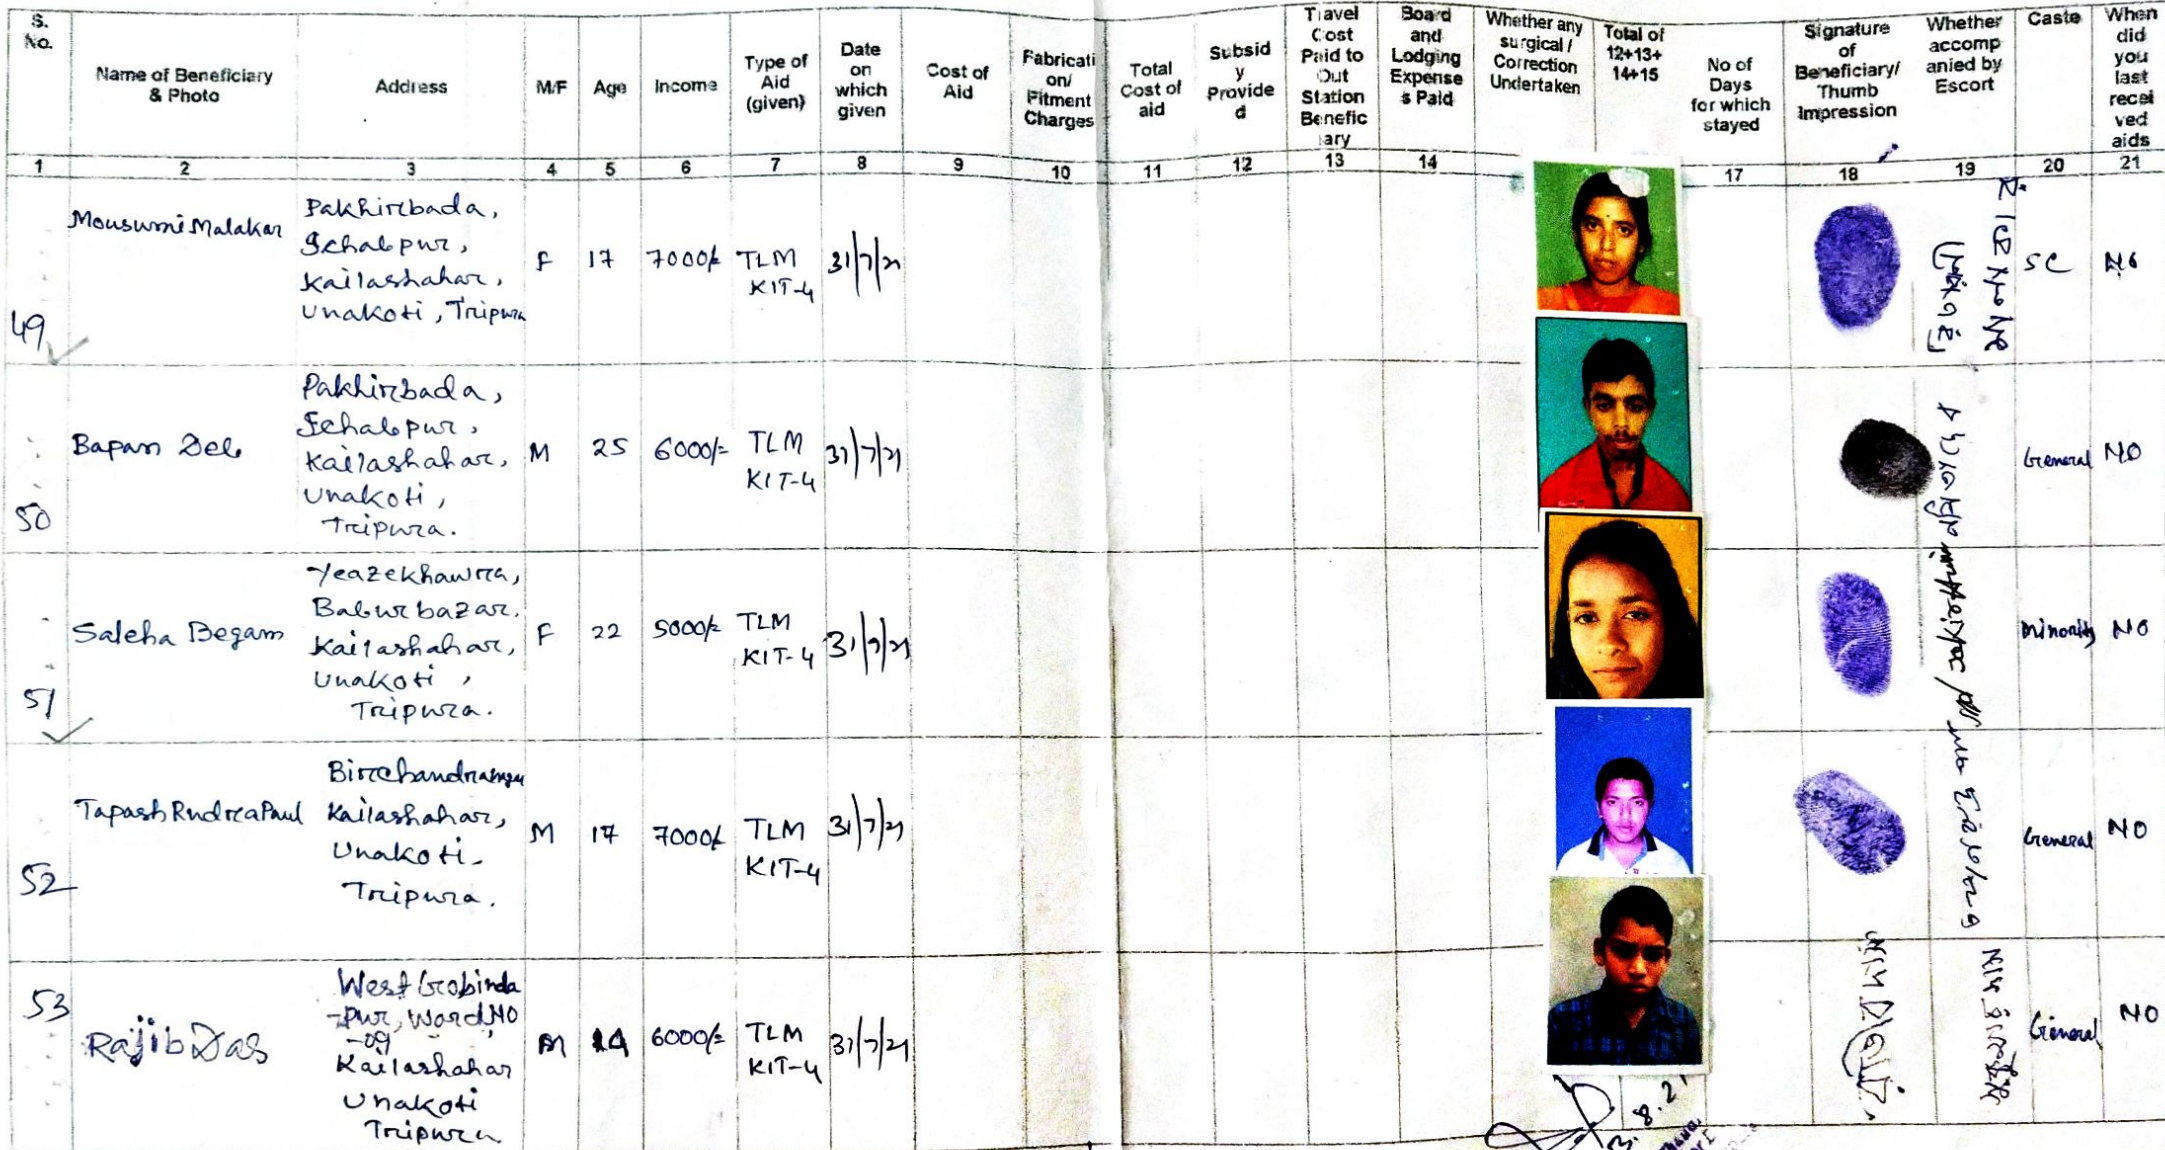 S. No.
Name of Beneficiary & Photo
Address
M/F
Age
Income
Type of Aid (given)
Date on which given
Cost of Aid
Fabricati on/ Fitment Charges
Total Cost of aid
Subsid y Provide d
Travel Cost Paid to Out Station Benefic iary
Board and Lodging Expense s Paid
Whether any surgical / Correction Undertaken
Total of 12+13+ 14+15
No of Days for which stayed
Signature of Beneficiary/ Thumb Impression
Whether accomp anied by Escort
Caste
When did you last recei ved aids
1 2 3 4 5 6 7 8 9 10 11 12 13 14 17 18 19 20 21
49 Mousumi Malakar
Pakhirbada,
Ichabpur,
Kailashahar,
Unakoti, Tripura
F 17 7000/- TLM KIT-4 31/7/21 SC NO
50 Bapan Deb
Pakhirbada,
Ichabpur,
Kailashahar,
Unakoti,
Tripura.
M 25 6000/= TLM KIT-4 31/7/21 General NO
51 Saleha Begam
Yeazekhawra,
Baburbazar,
Kailashahar,
Unakoti,
Tripura.
F 22 5000/- TLM KIT-4 31/7/21 Minority NO
52 Tapash RudraPaul
Kailashahar,
Unakoti.
Tripura.
M 17 7000/- TLM KIT-4 31/7/21 General NO
53 Rajib Das
West Gobinda
-pur, Ward NO
-09
Kailashahar
Unakoti
Tripura
M 14 6000/= TLM KIT-4 31/7/21 General NO